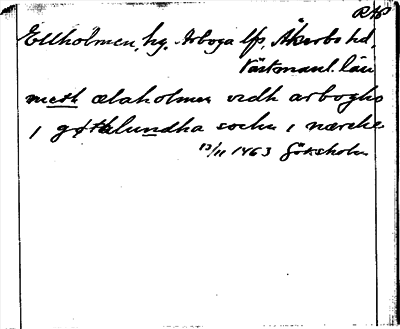 RAP
Ellholmen, hg. Arboga lfs, Åkerbo hd,
Västmanl. län
medh ælaholmen vidh arbogha
i gøthlundha sochn i nærike
13/11 1463 Göksholm